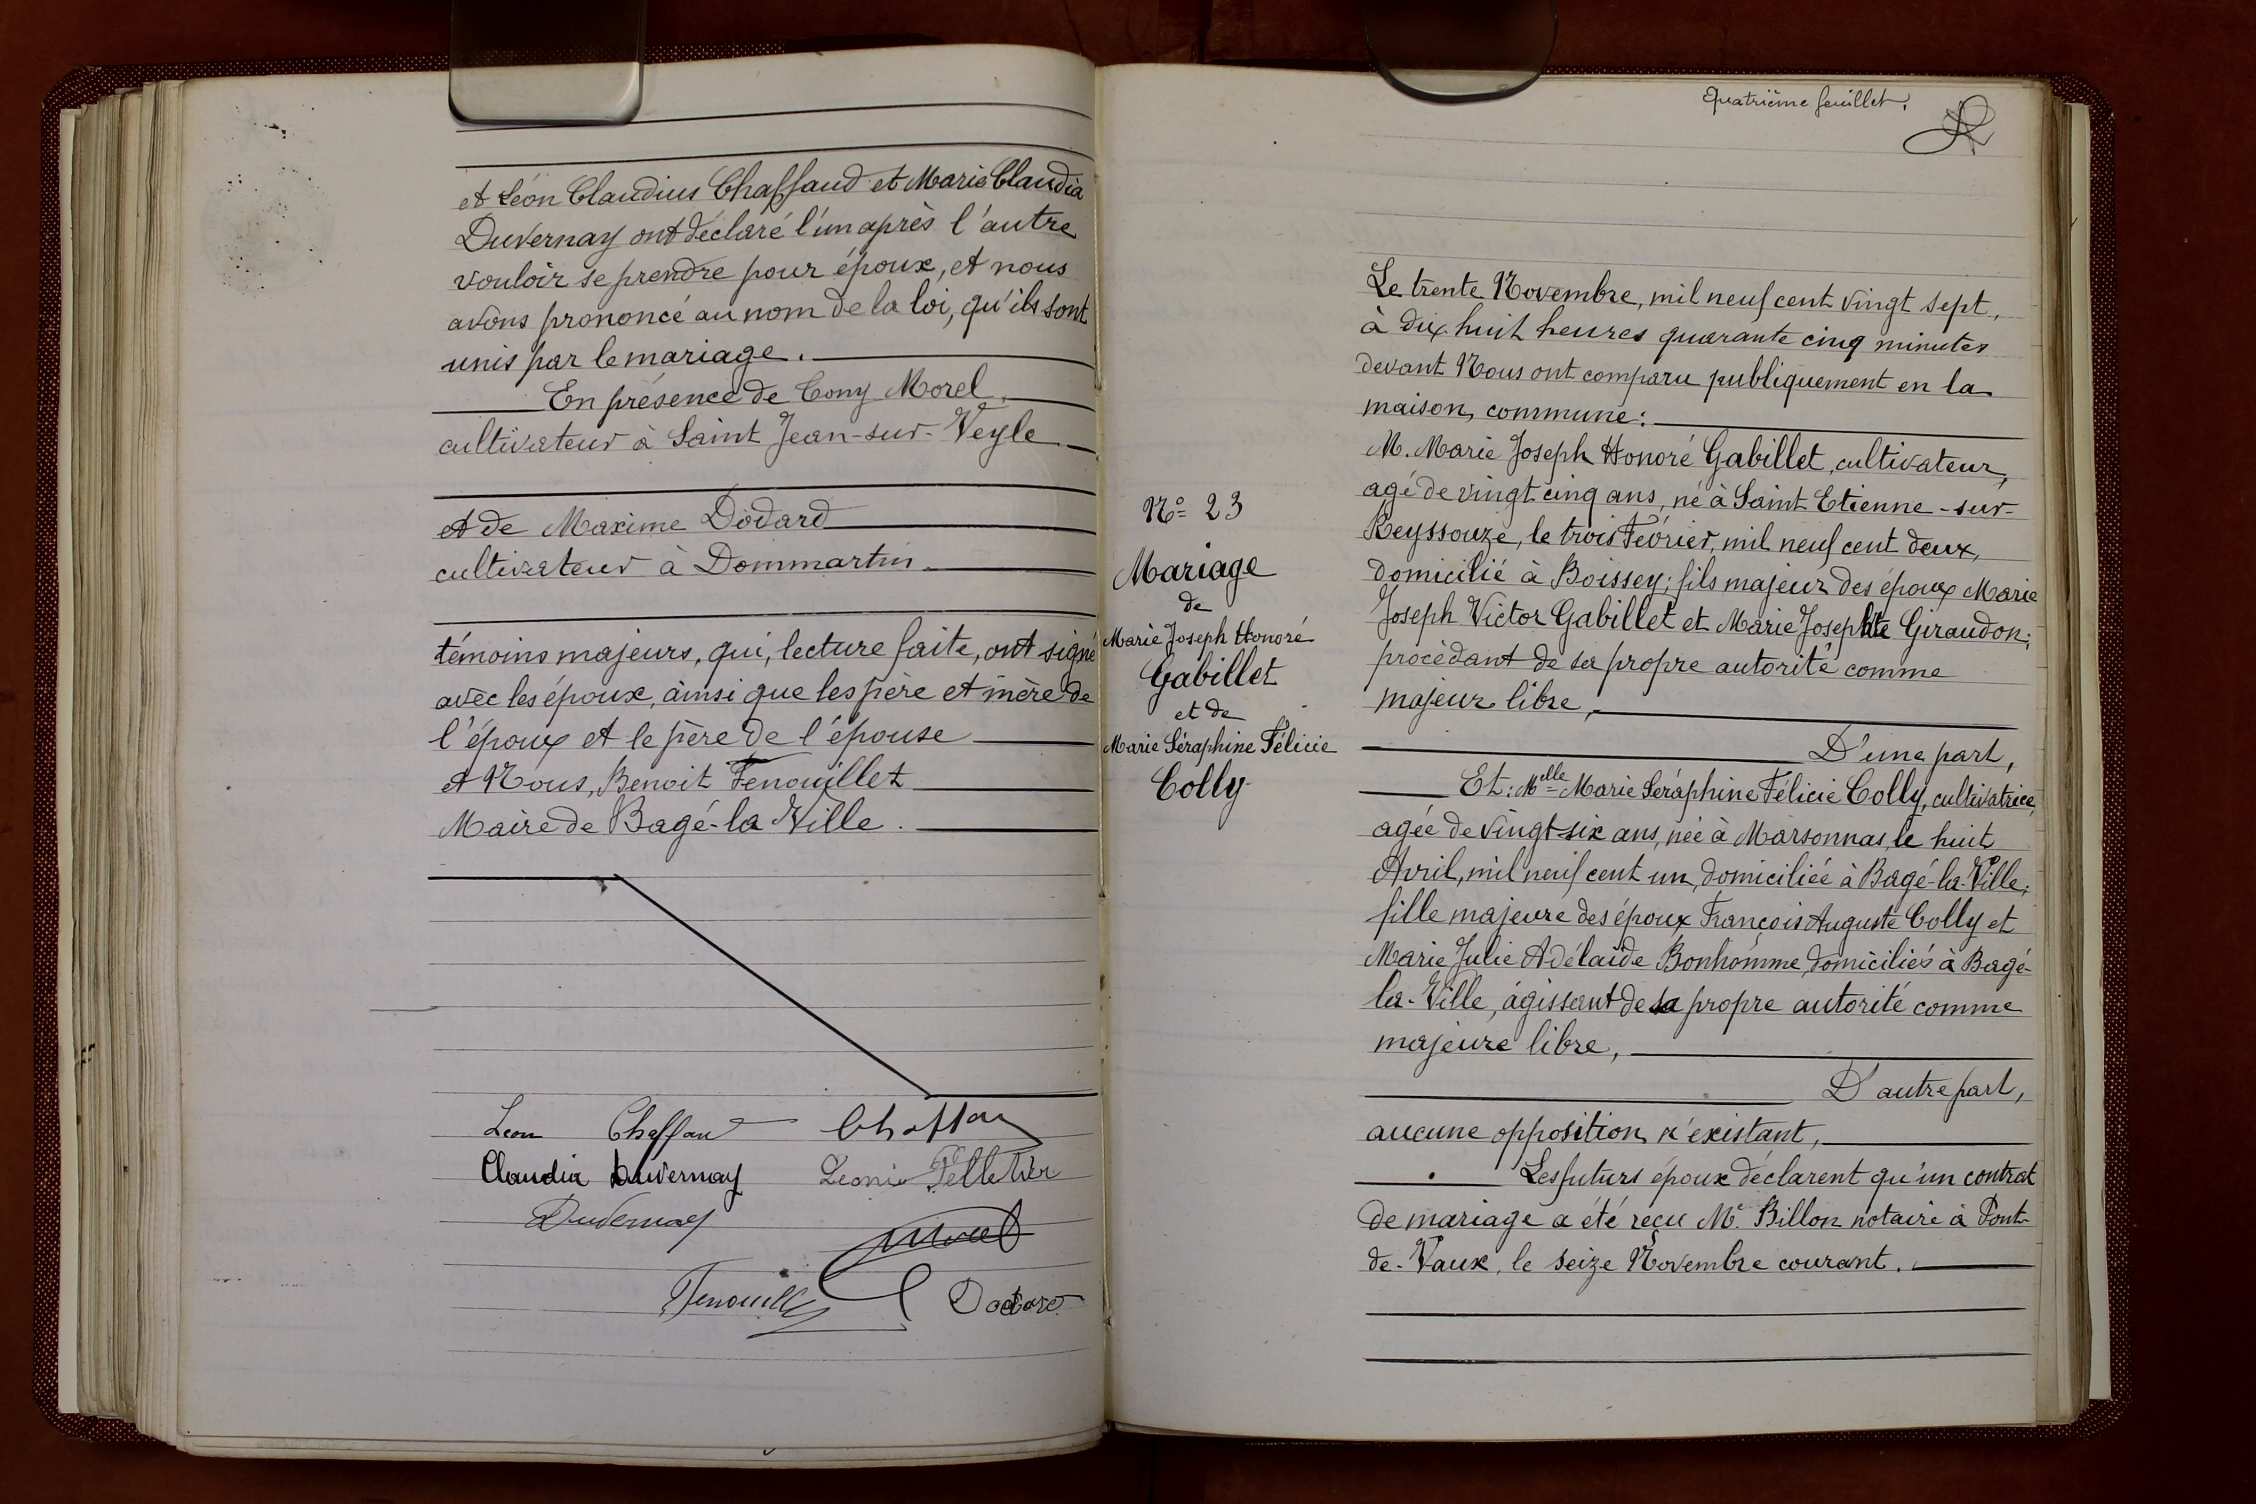 et Léon Claudius Chaffaud et Marie Claudia
Duvernay ont déclaré l'un après l'autre
vouloir se prendre pour époux, et nous
avons prononcé au nom de la loi, qu'ils sont
unis par le mariage.
En présence de Cony Morel
cultivateur à Saint Jean-sur-Veyle
et de Maxime Dodard
cultivateur à Dommartin
témoins majeurs, qui, lecture faite, ont signé
avec les époux, ainsi que les père et mère de
l'époux et le père de l'épouse
et Nous, Benoit Fenouillet
Maire de Bagé-la Ville.
Leon Chaffaud Chaffau
Claudia Duvernay Leonie Pelletier
Duvernay
Morel
Fenouillet Dodard
Quatrième feuillet.
N° 23
Mariage
de
Marie Joseph Honoré
Gabillet
et de
Marie Séraphine Félicie
Colly
Le trente Novembre, mil neuf cent vingt sept,
à dix huit heures quarante cinq minutes
devant Nous ont comparu publiquement en la
maison commune:
M. Marie Joseph Honoré Gabillet, cultivateur,
agé de vingt cinq ans, né à Saint Etienne-sur-
Reyssouze, le trois Février, mil neuf cent deux,
domicilié à Boissey; fils majeur des époux Marie
Joseph Victor Gabillet et Marie Josephte Giraudon;
procèdant de sa propre autorité comme
majeur libre,
D'une part,
Et: Melle Marie Séraphine Félicie Colly, cultivatrice,
agée de vingt-six ans, née à Marsonnas, le huit
Avril, mil neuf cent un, domiciliée à Bagé-la-Ville;
fille majeure des époux François Auguste Colly et
Marie Julie Adélaïde Bonhomme, domiciliés à Bagé-
la-Ville, agissant de sa propre autorité comme
majeure libre,
D'autre part,
aucune opposition n'existant,
Les futurs époux déclarent qu'un contrat
de mariage a été reçu Me. Billon notaire à Pont-
de-Vaux, le seize Novembre courant.